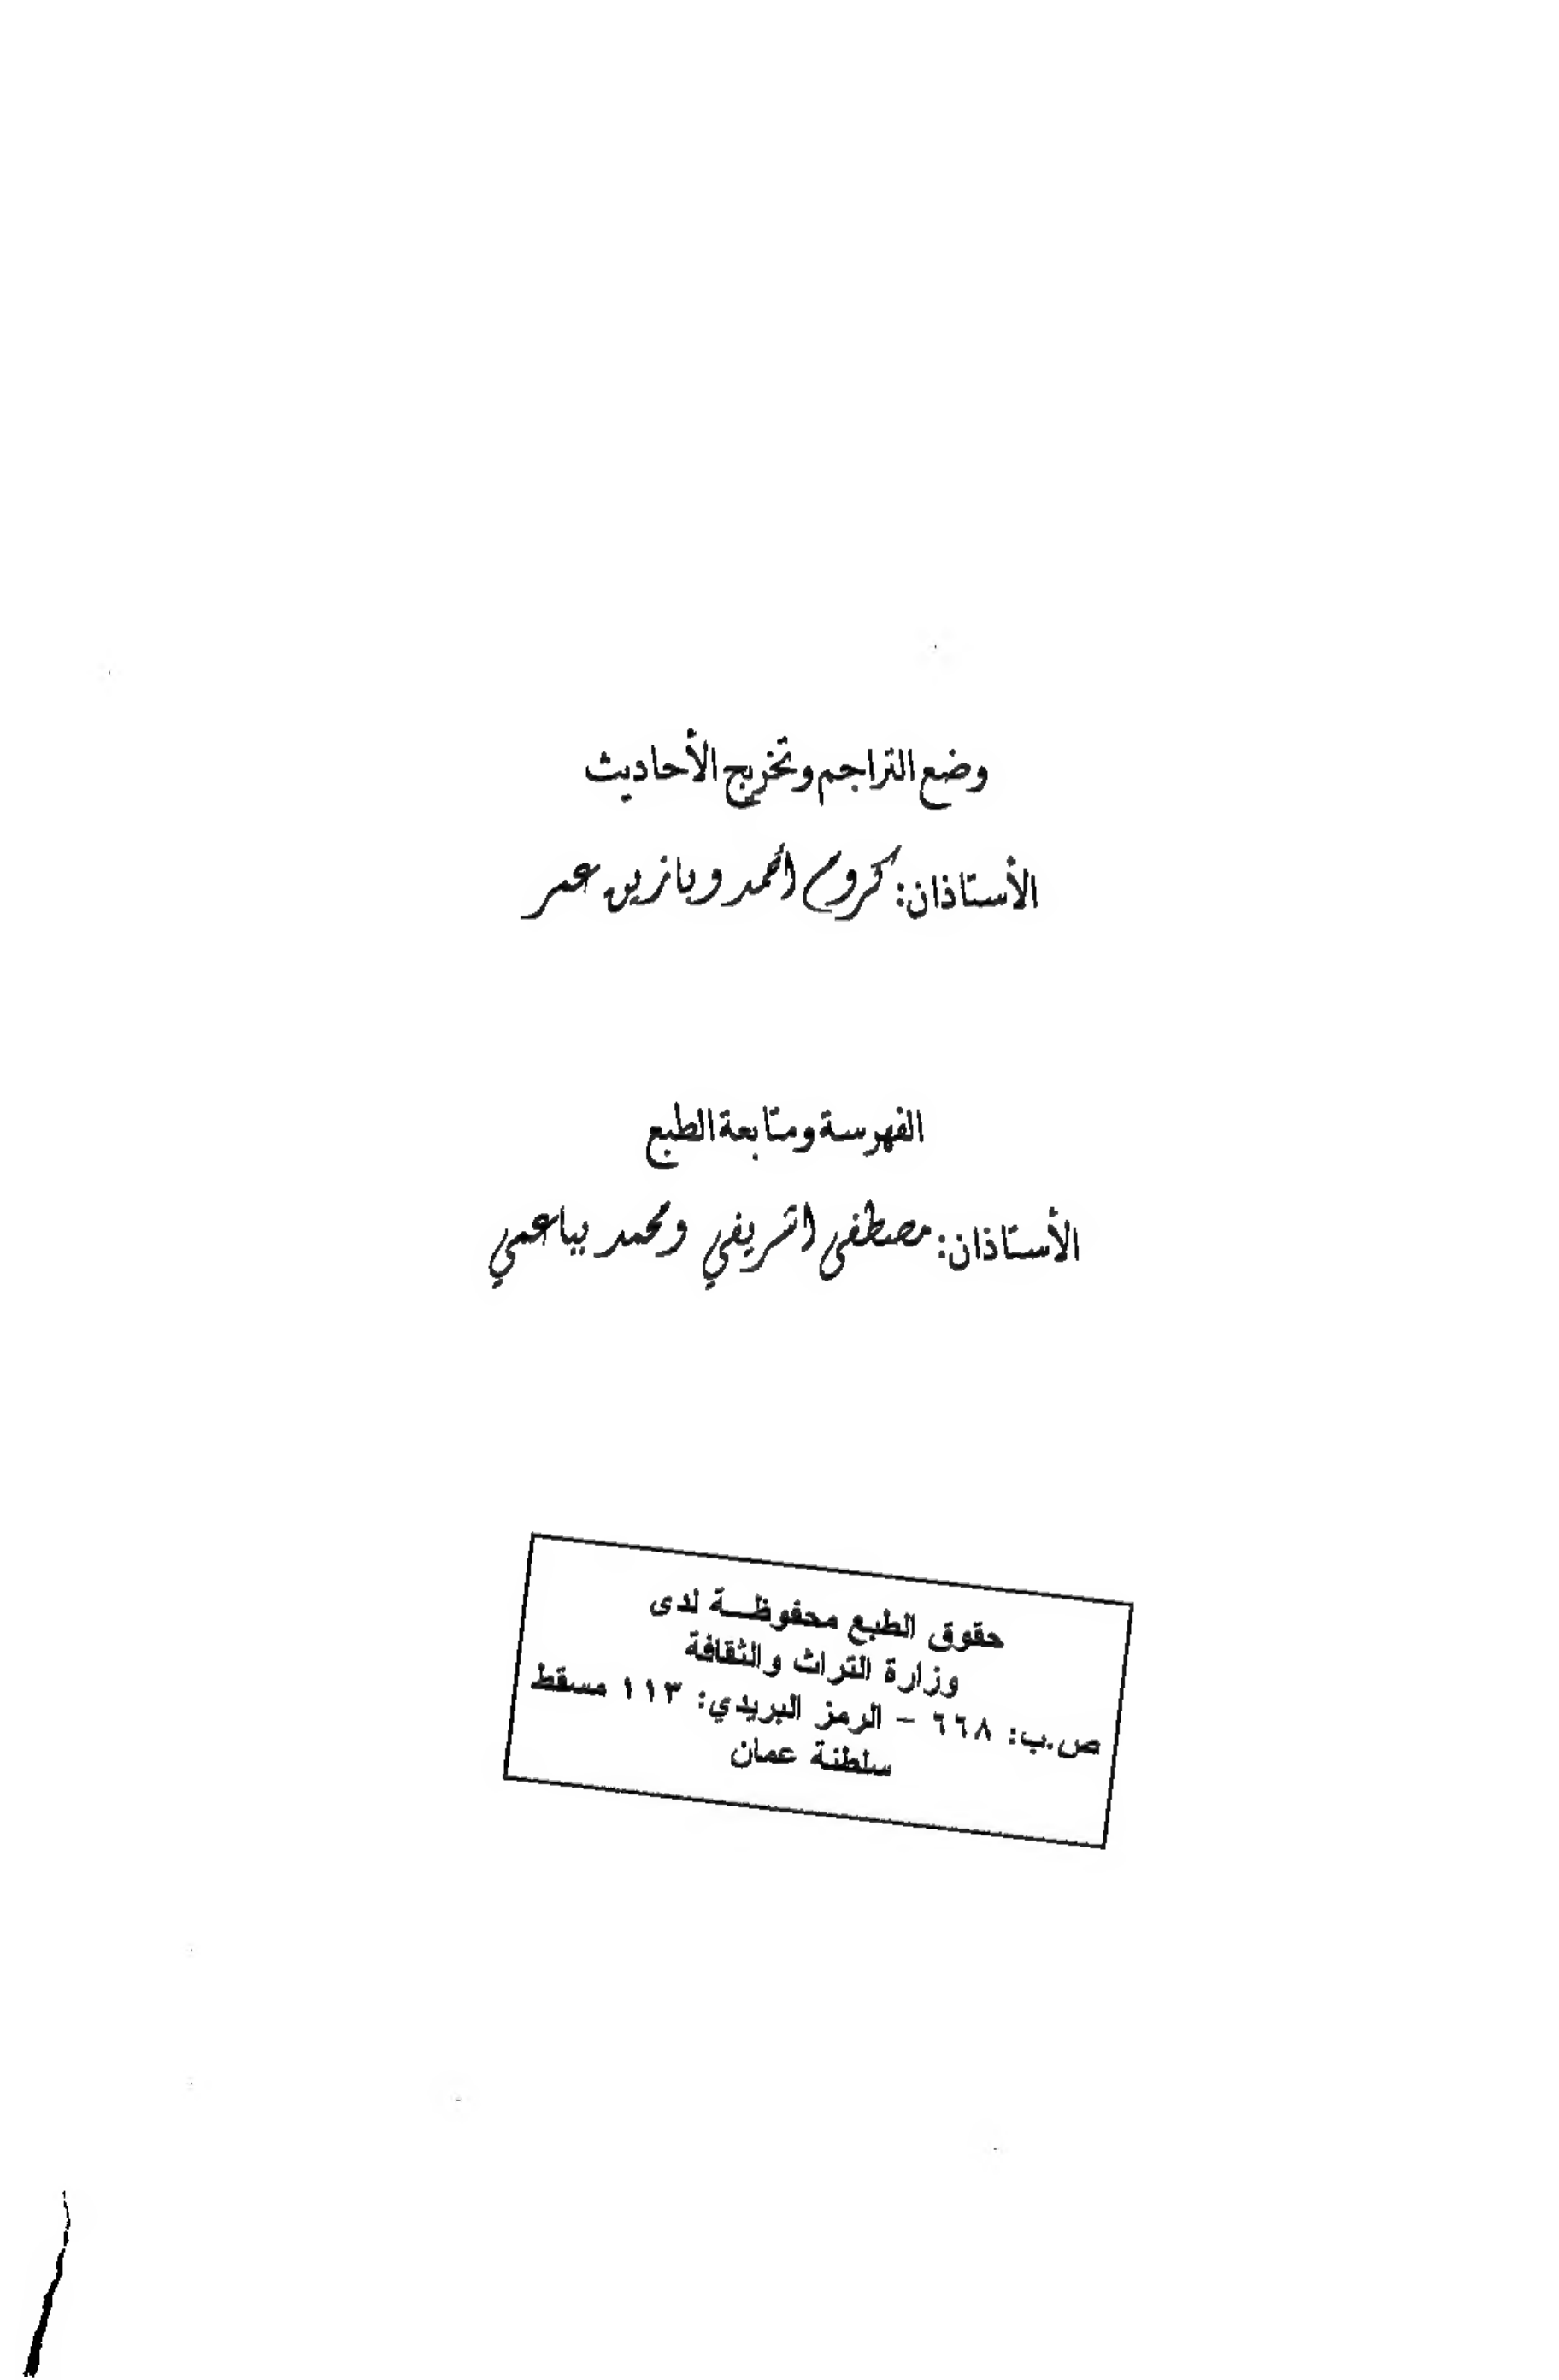 وضع التراجم وتخريج الأحاديث
الأستاذان: كروم أحمد وبازين عمر
الفهرسة ومتابعة الطبع
الأستاذان: مصطفى اشريفي ومحمد بياعمي
حقوق الطبع محفوظة لدى
وزارة التراث والثقافة
ص.ب: ٦٦٨ - الرمز البريدي: ١١٣ مسقط
سلطنة عمان